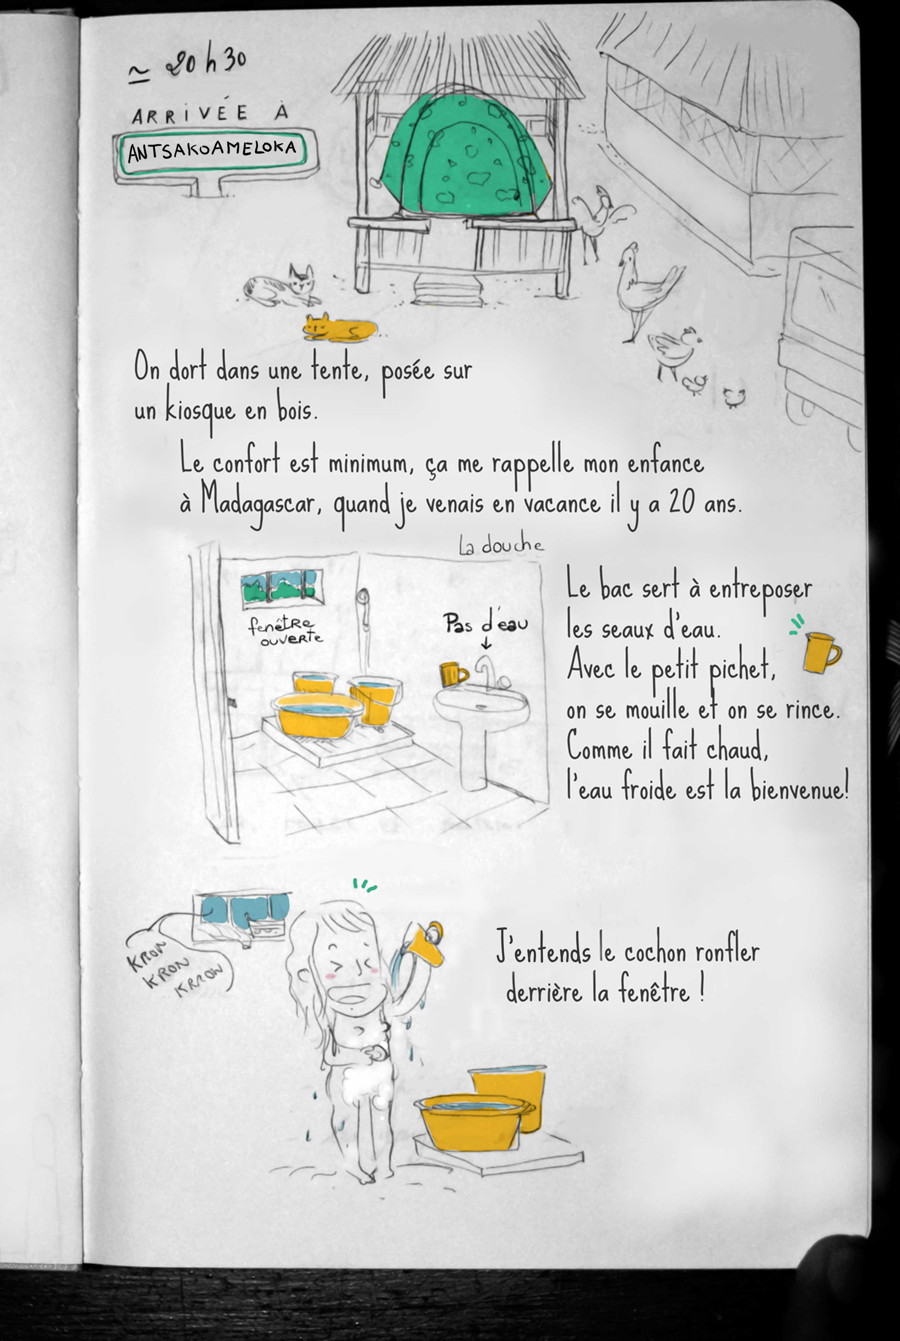 ≃ 20 h 30
ARRIVÉE À
ANTSAKOAMELOKA
On dort dans une tente, posée sur
un kiosque en bois.
Le confort est minimum, ça me rappelle mon enfance
à Madagascar, quand je venais en vacance il y a 20 ans.
La douche
fenêtre
ouverte
Pas d'eau
Le bac sert à entreposer
les seaux d'eau.
Avec le petit pichet,
on se mouille et on se rince.
Comme il fait chaud,
l'eau froide est la bienvenue!
KRON
KRON
KRRON
J'entends le cochon ronfler
derrière la fenêtre !